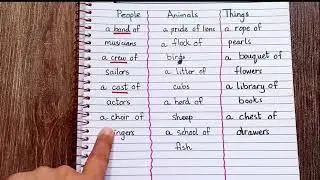 People
a band of
musicians
a crew of
sailors
a cast of
actors
a choir of
ingers
Animals
a pride of lions
a flock of
birds
a litter of
cubs
a herd of
sheep
a school of
fish
Things
a rope of
pearls
a bouquet of
flowers
a library of
books
a chest of
drawers